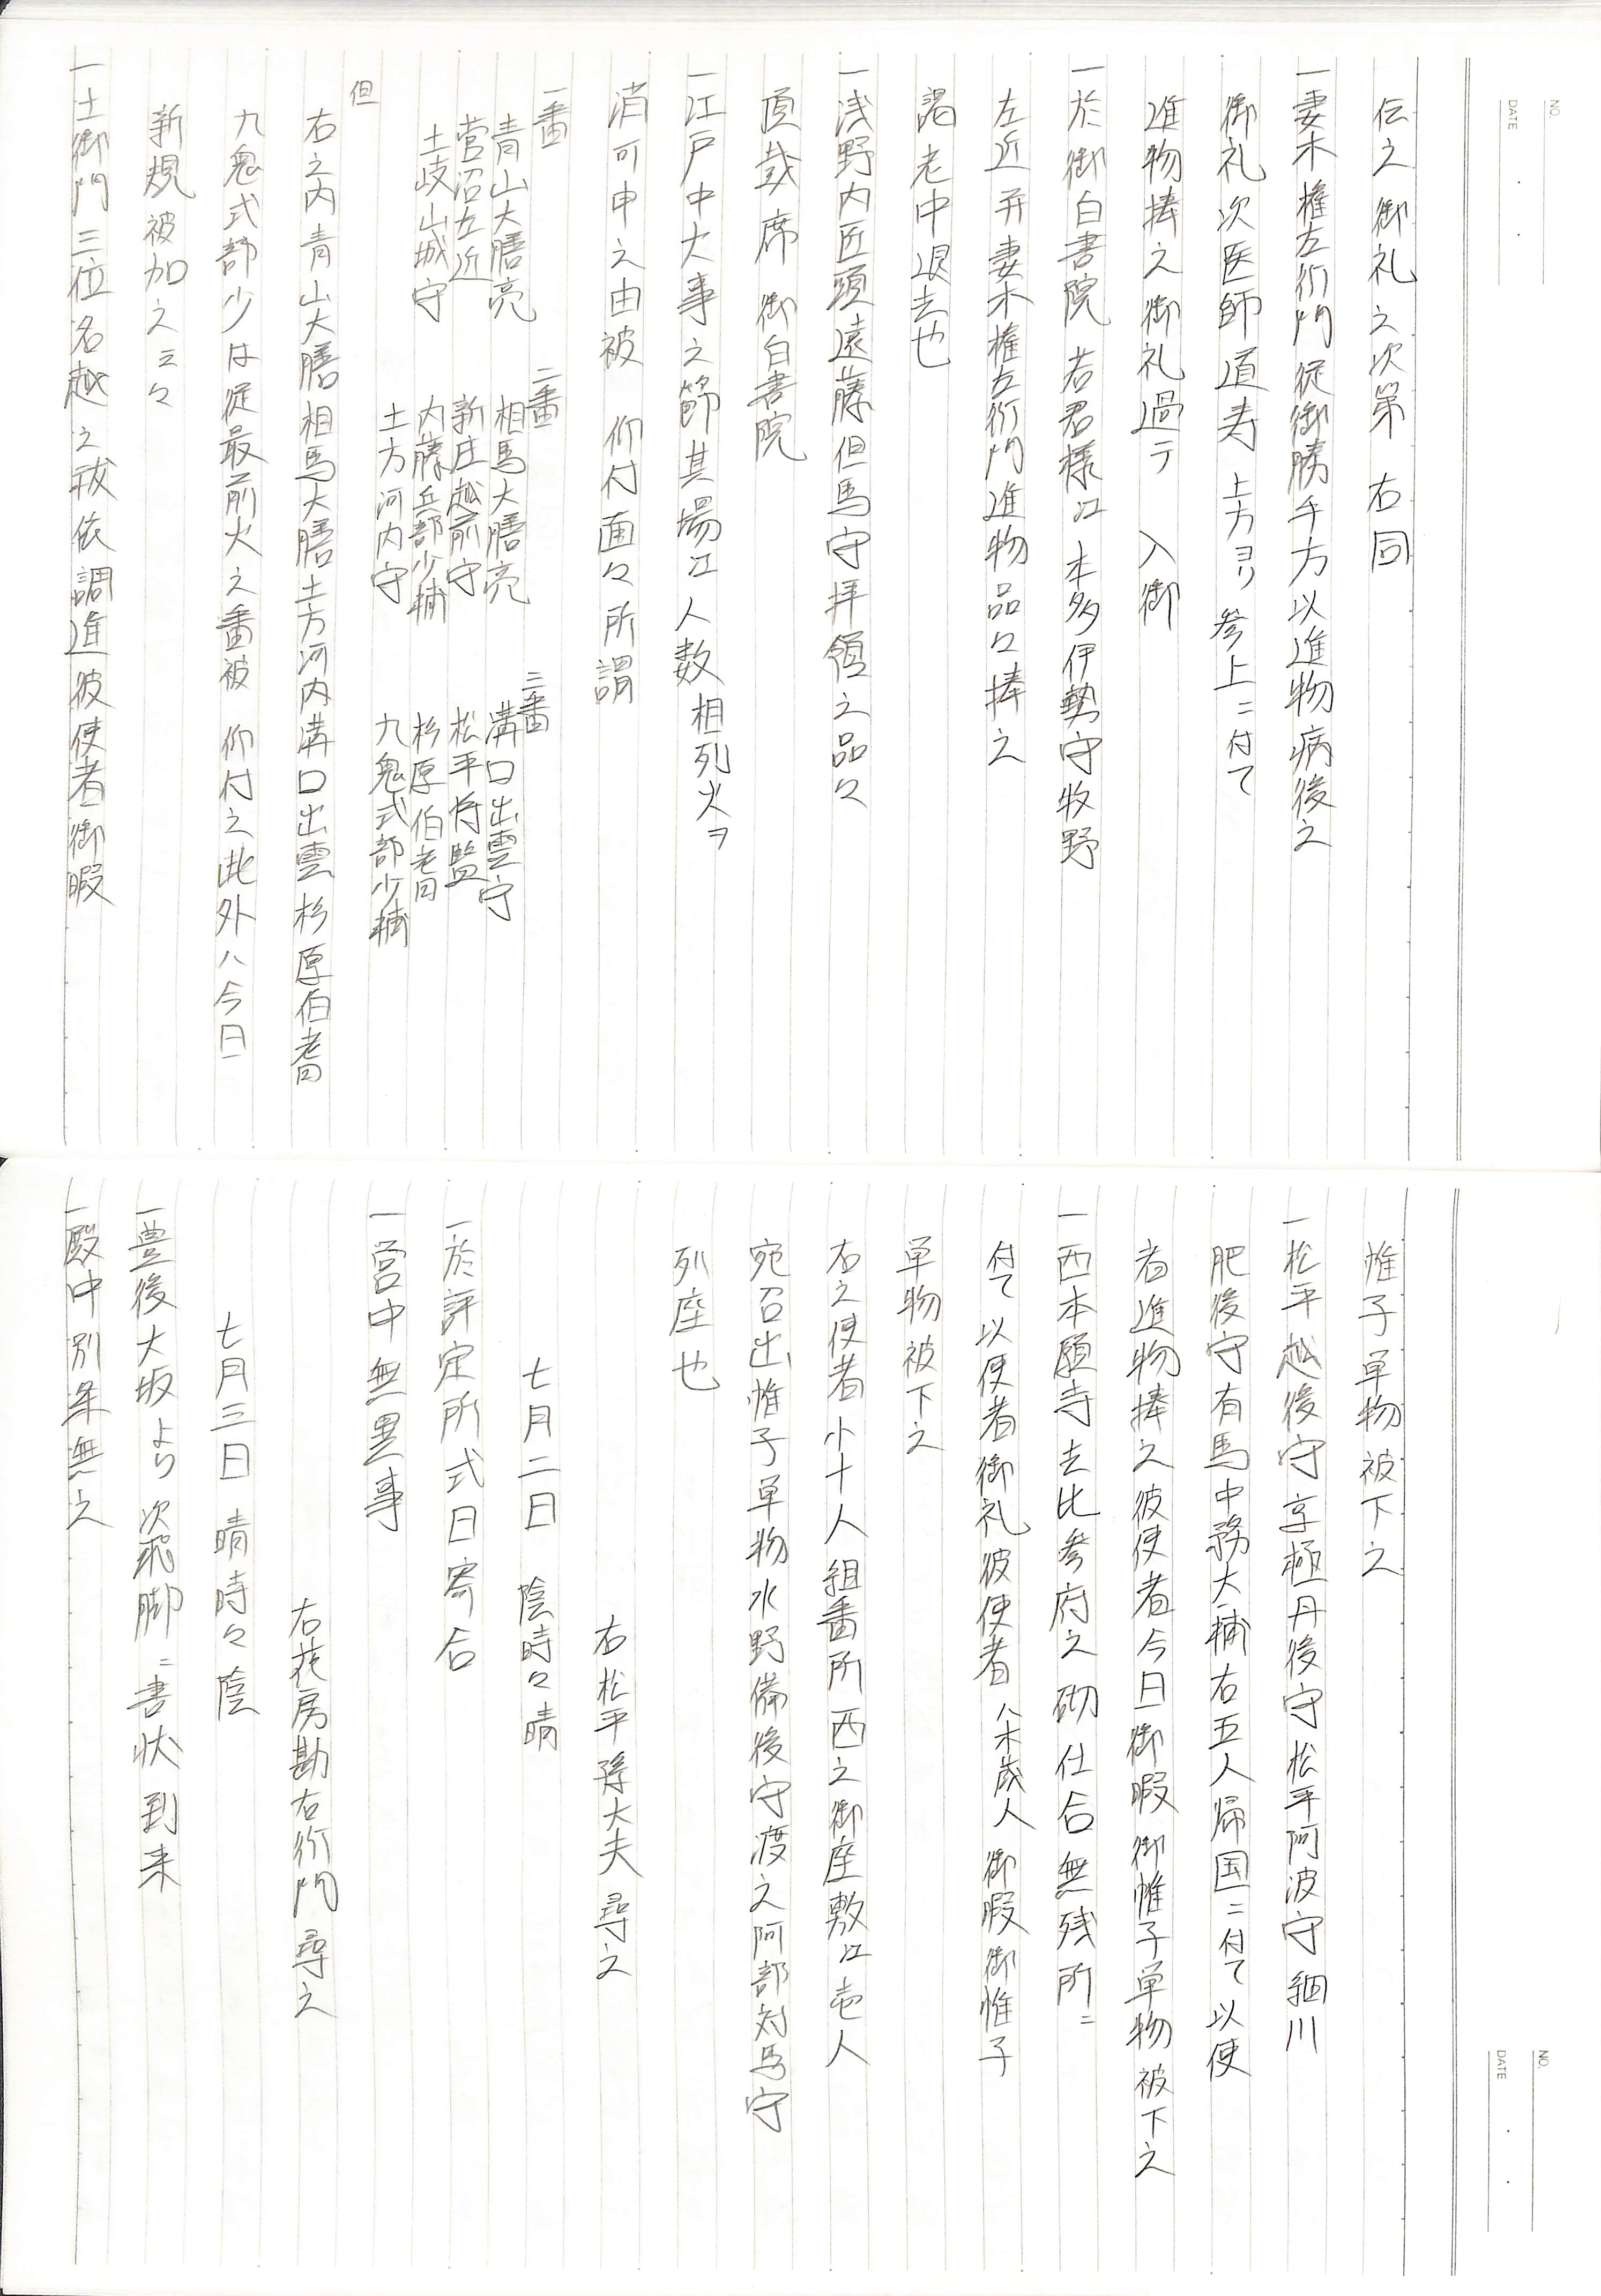 NO.
DATE
伝之御礼之次第 右同
一妻木権左衛門従御勝手方以進物病後之
御礼次医師道寿 上方ヨリ参上ニ付て
進物捧之御礼過テ 入御
一於御白書院 若君様江 本多伊勢守牧野
左近并妻木権左衛門進物品々捧之
謁老中退去也
一浅野内匠頭遠藤但馬守拝領之品々
頂戴席 御白書院
一江戸中大事之節其場江人数相列火ヲ
消可申之由被 仰付面々所謂
一番
青山大膳亮
菅沼左近
土岐山城守
二番
相馬大膳亮
新庄越前守
内藤兵部少輔
土方河内守
三番
溝口出雲守
松平将監
杉原伯耆
九鬼式部少輔
但
右之内青山大膳相馬大膳土方河内溝口出雲杉原伯耆
九鬼式部少は従最前火之番被 仰付之此外ハ今日
新規被加之云々
一土御門三位名越之祓依調進彼使者御暇
NO.
DATE
帷子単物被下之
一松平越後守京極丹後守松平阿波守細川
肥後守有馬中務大輔右五人帰国ニ付て以使
者進物捧之彼使者今日御暇御帷子単物被下之
一西本願寺去比参府之砌仕合無残所ニ
付て以使者御礼彼使者 八木蔵人 御暇御帷子
単物被下之
右之使者小十人組番所西之御座敷江壱人
宛召出帷子単物水野備後守渡之阿部対馬守
列座也
右松平孫大夫尋之
七月二日 陰時々晴
一於評定所式日寄合
一営中無異事
右花房勘右衛門尋之
七月三日 晴時々陰
一豊後大坂より次飛脚ニ書状到来
一殿中別条無之